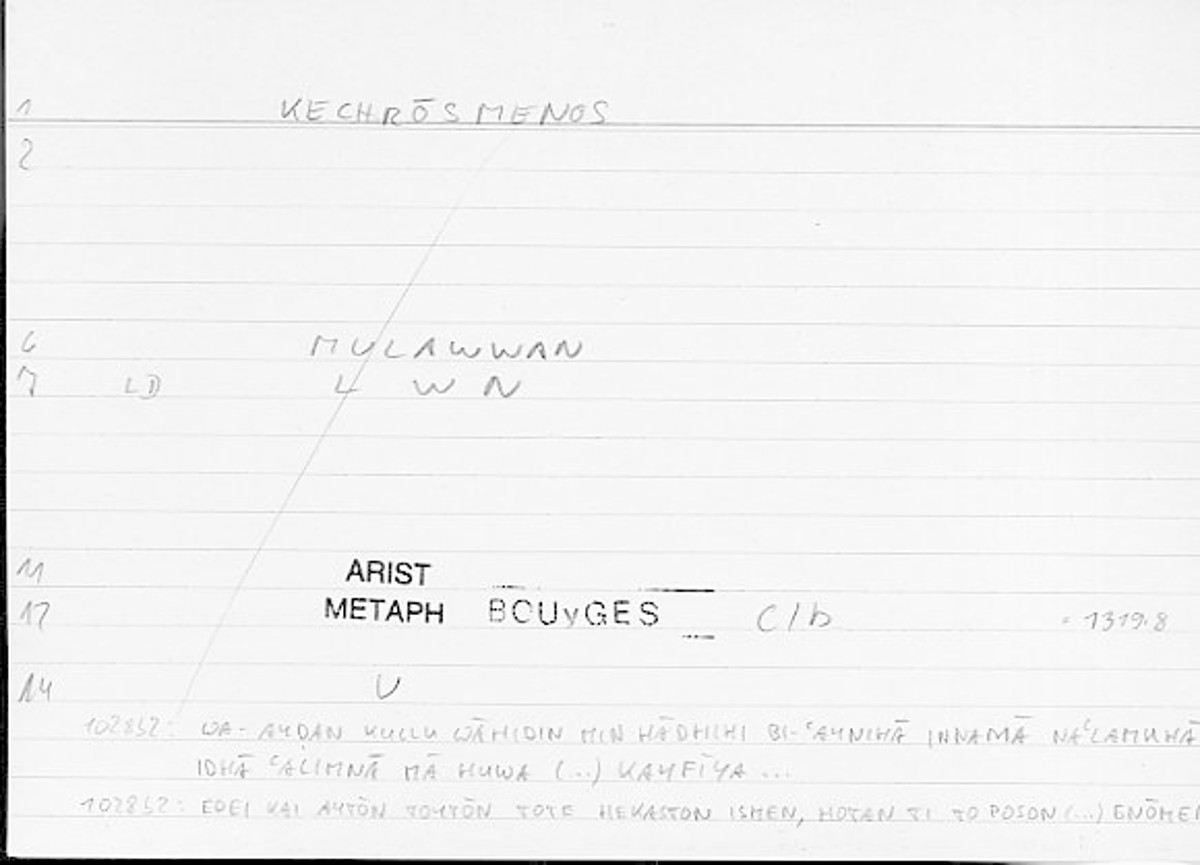 1 KECHRŌSMENOS
2
6 MULAWWAN
7 LD L W N
11 ARIST
12 METAPH BOUyGES C/b 1319.8
14 U
1028b2: WA-AYDAN KULLU WĀHIDIN MIN HĀDHIHI BI-ʿAYNIHĀ INNAMĀ NAʿLAMUHĀ
IDHĀ ʿALIMNĀ MĀ HUWA (...) KAYFĪYA ...
1028b2: EPEI KAI AYTŌN TOYTŌN TOTE HEKASTON ISMEN, HOTAN TI TO POSON (...) GNŌMEN